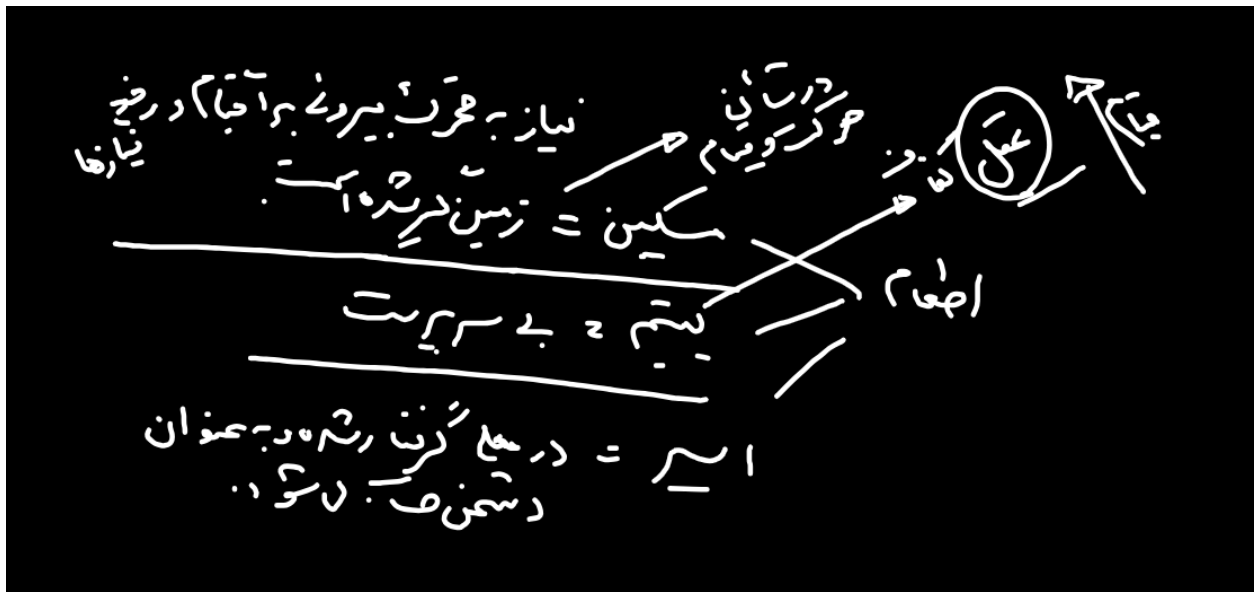 نیاز به محرک بیرونی برا قیام و رفع
نیازها
در ستای
حرکت و قیام
نیاز
عمل
قیام
مسکین = زمین گیر شده است.
اطعام
یتیم = بی سرپرست
اسیر = در گرفتار شده و به عنوان
دشمن می شود.